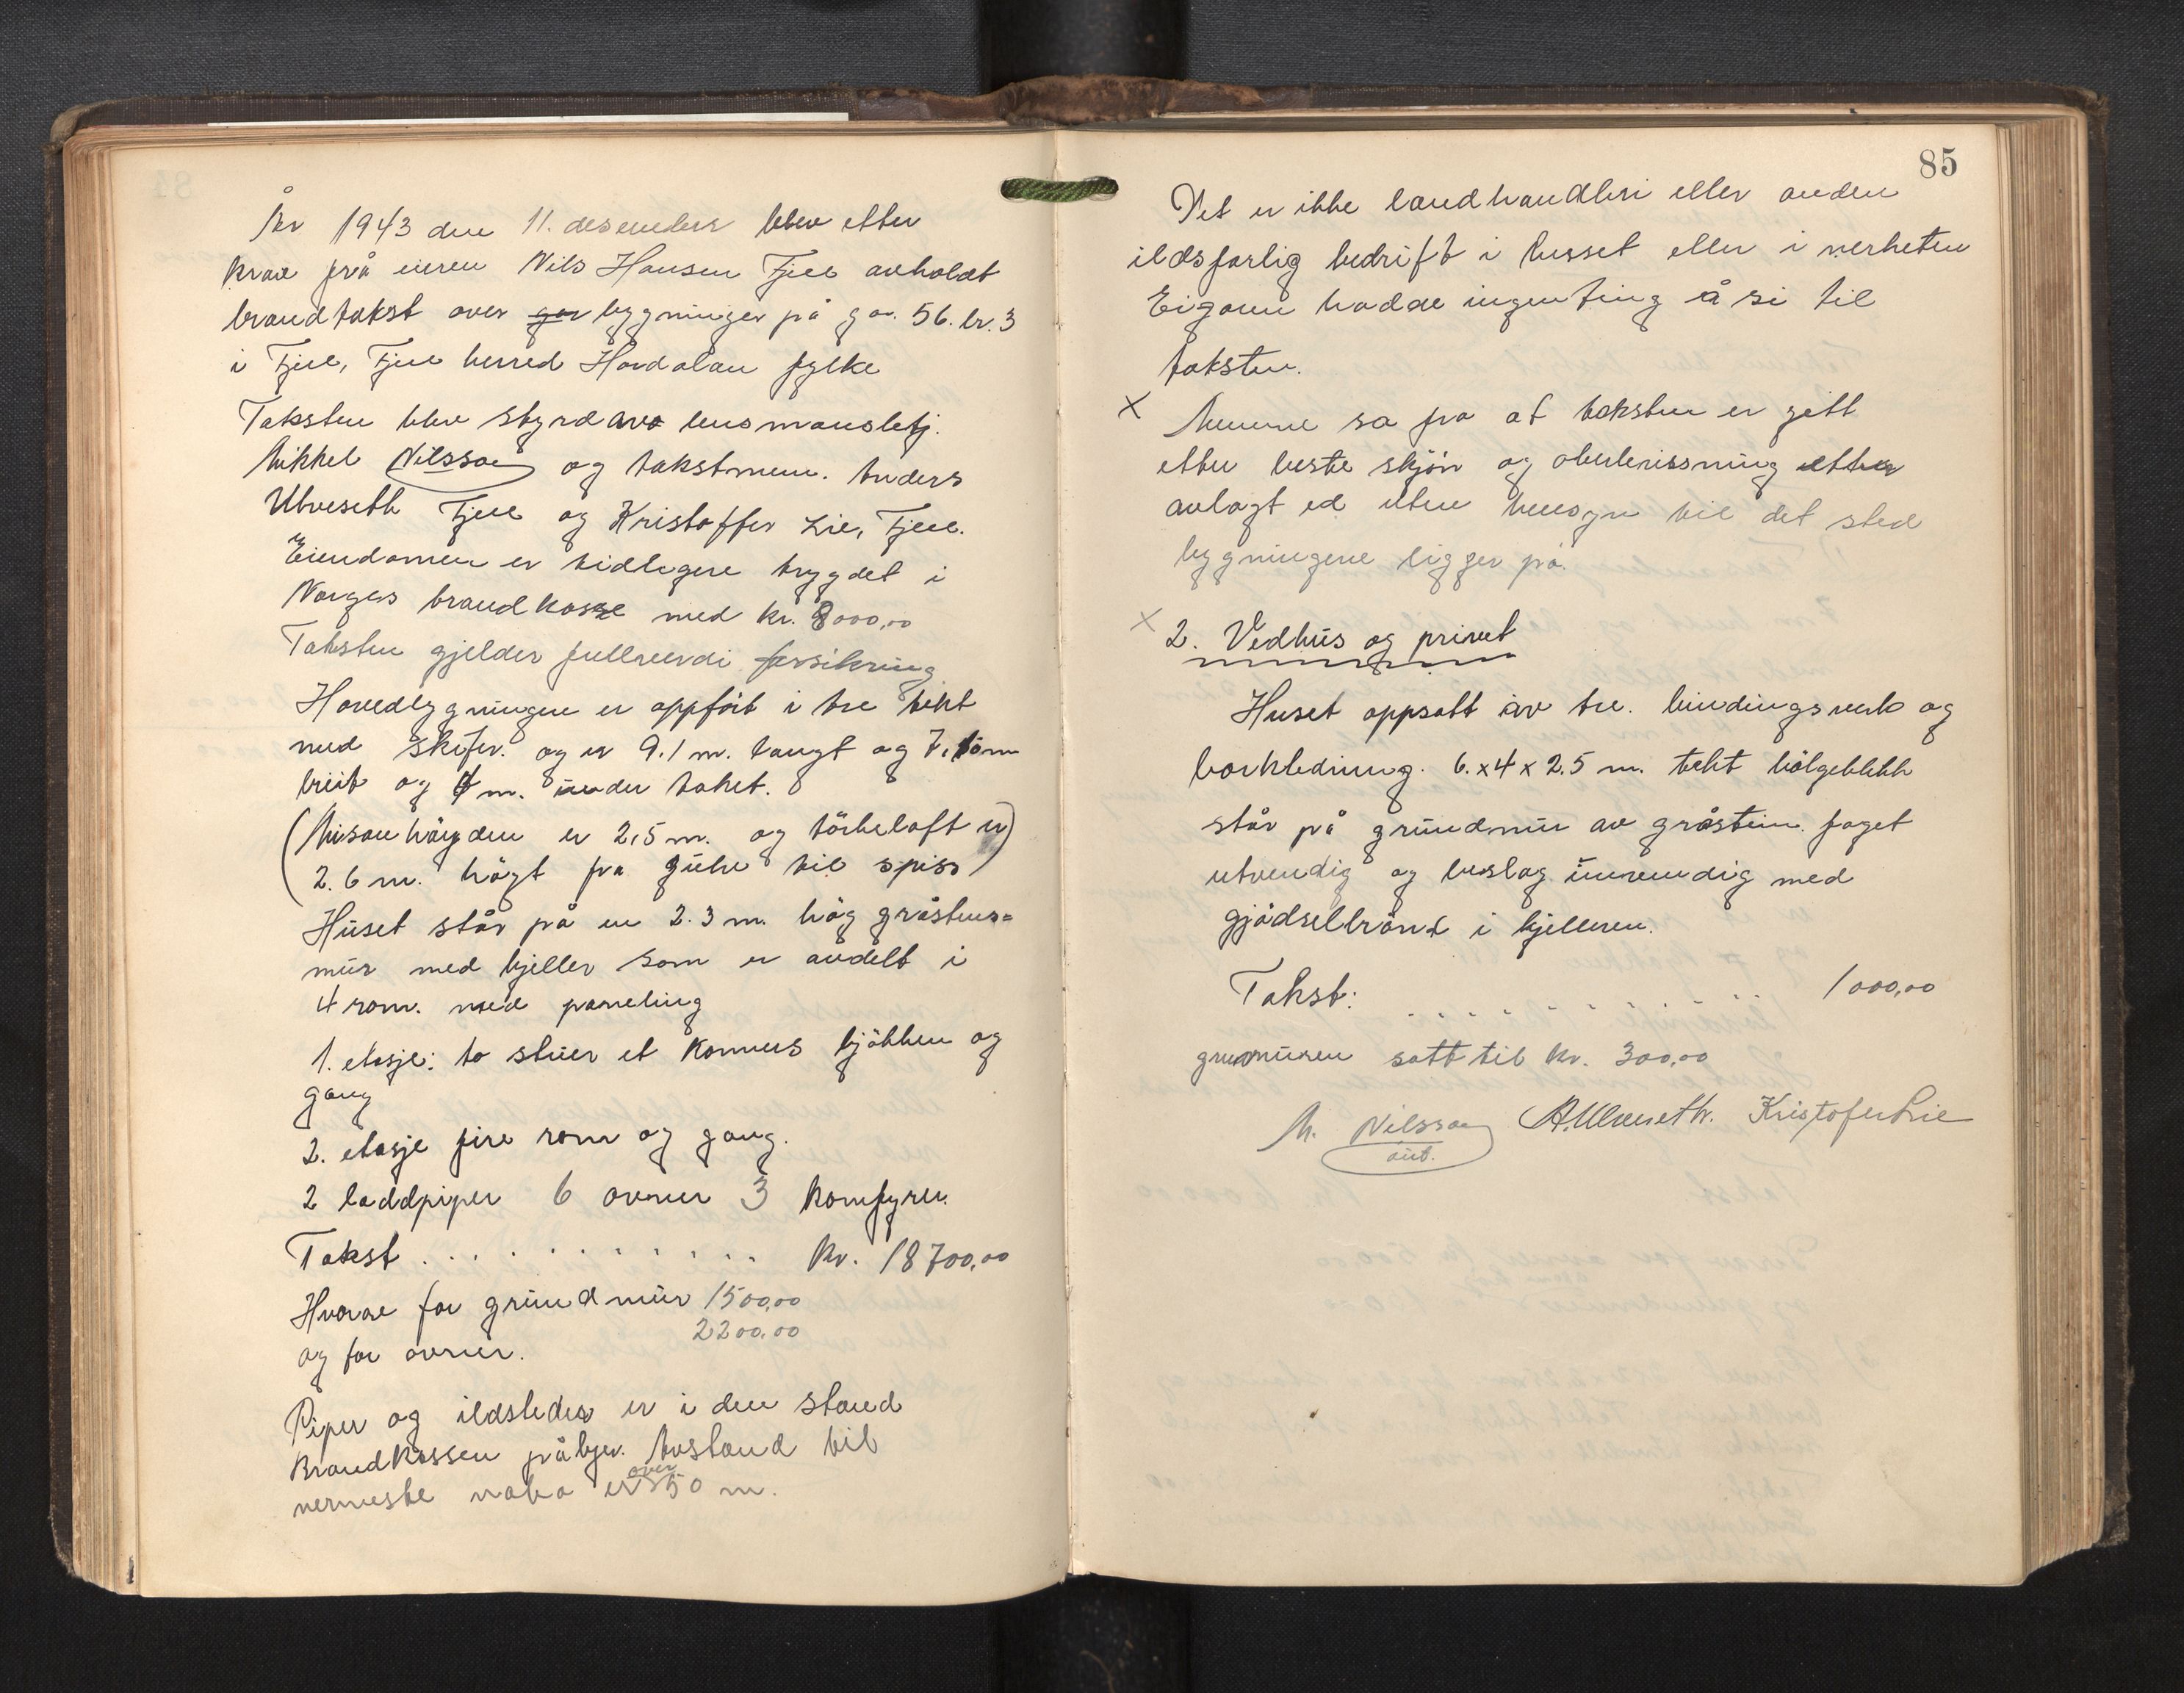 År 1943 den 11. desember blev etter
krav frå eieren Nils Hansen Fjell avholdt
brandtakst over gar bygninger på g.nr. 56. br. 3
i Fjell, Fjell herred Hordalan fylke
Taksten blev styrd av lensmansbetj.
Mikkel Nilssen og takstmenn. Anders
Ulveseth Fjell og Kristoffer Lie, Fjell.
Eiendomen er tidligere trygdet i
Norges brandkasse med kr. 8000,00
Taksten gjelder fullverdi forsikring
Hovedbygningen er oppført i tre tekt
med skifer. og er 9.1 m. langt og 7,10m
breit og 4 m. under taket.
(Mesanhøyden er 2,5 m. og törkeloft er
2.6 m. högt fra gulv til spiss)
Huset står på en 2.3 m. hög gråstens=
mur med kjeller som er avdelt i
4 rom. med paneling
1. etasje: to stuer et kammers kjökken og
gang
2. etasje fire rom og gang.
2 laddpiper 6 ovner 3 komfyrer.
Takst . . . . . . . . . . . kr. 18700,00
Hvorav for grundmur 1500,00
2200.00
og for ovner.
Piper og ildsteder er i den stand
Brandkassen påbyr. Avstand til
nermeste nabo er over 50 m.
85
Det er ikke landhandleri eller anden
ildsfarlig bedrift i husset eller i nerheten
Eigaren hadde ingenting å si til
taksten.
x Mennene sa fra at taksten er gitt
etter beste skjön og oberbevissning etter
avlagt ed uten hensyn til det sted
bygningene ligger på.
x 2. Vedhus og privet
Huset oppsatt av tre. bindingsverk og
borkledning. 6. x 4 x 2.5 m. tekt bölgeblekk
står på grundmur av gråstein. faget
utvendig og beslag innvendig med
gjödselbrönd i kjelleren.
Takst: . . . . . . . . . . 1000,00
grunmuren satt til kr. 300,00
M. Nilssen A. Ulveseth. Kristofer Lie
aut.